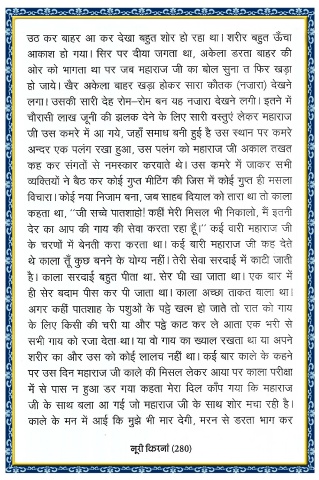 उठ कर बाहर आ कर देखा बहुत शोर हो रहा था। शरीर बहुत ऊँचा
आकाश हो गया। सिर पर दीया जगता था, अकेला डरता बाहर की
ओर को भागता था पर जब महाराज जी का बोल सुना त फिर खड़ा
हो जाये। खैर अकेला बाहर खड़ा होकर सारा कौतक (नजारा) देखने
लगा। उसकी सारी देह रोम-रोम बन यह नजारा देखने लगी। इतने में
चौरासी लाख जूनी की झलक देने के लिए सारी वस्तुएं लेकर महाराज
जी उस कमरे में आ गये, जहाँ समाध बनी हुई है उस स्थान पर कमरे
अन्दर एक पलंग रखा हुआ, उस पलंग को महाराज जी अकाल तखत
कह कर संगतों से नमस्कार करवाते थे। उस कमरे में जाकर सभी
व्यक्तियों ने बैठ कर कोई गुप्त मीटिंग की जिस में कोई गुप्त ही मसला
विचारा। कोई नया निजाम बना, जब साहब दियाल को तारा था तो काला
कहता था, ''जी सच्चे पातशाहो! कहीं मेरी मिसल भी निकालो, मैं इतनी
देर का आप की गाय की सेवा करता रहा हूँ।'' कई वारी महाराज जी
के चरणों में बेनती करा करता था। कई बारी महाराज जी कह देते
थे काला तूँ कुछ बनने के योग्य नहीं। तेरी सेवा सरदाई में काटी जाती
है। काला सरदाई बहुत पीता था. सेर घी खा जाता था। एक बार में
ही सेर बदाम पीस कर पी जाता था। काला अच्छा ताकत बाला था।
अगर कहीं पातशाह के पशुओं के पट्ठे खत्म हो जाते तो रात को गाय
के लिए किसी की चरी या और पट्ठे काट कर ले आता एक भरी से
सभी गाय को रजा देता था। या वो गाय का ख्याल रखता था या अपने
शरीर का और उस को कोई लालच नहीं था। कई बार काले के कहने
पर उस दिन महाराज जी काले की मिसल लेकर आया पर काला परीक्षा
में से पास न हुआ डर गया कहता मेरा दिल काँप गया कि महाराज
जी के साथ बला आ गई जो महाराज जी के साथ शोर मचा रही है।
काले के मन में आई कि मुझे भी मार देगी, मरन से डरता भाग कर
नूरी किरनां (280)